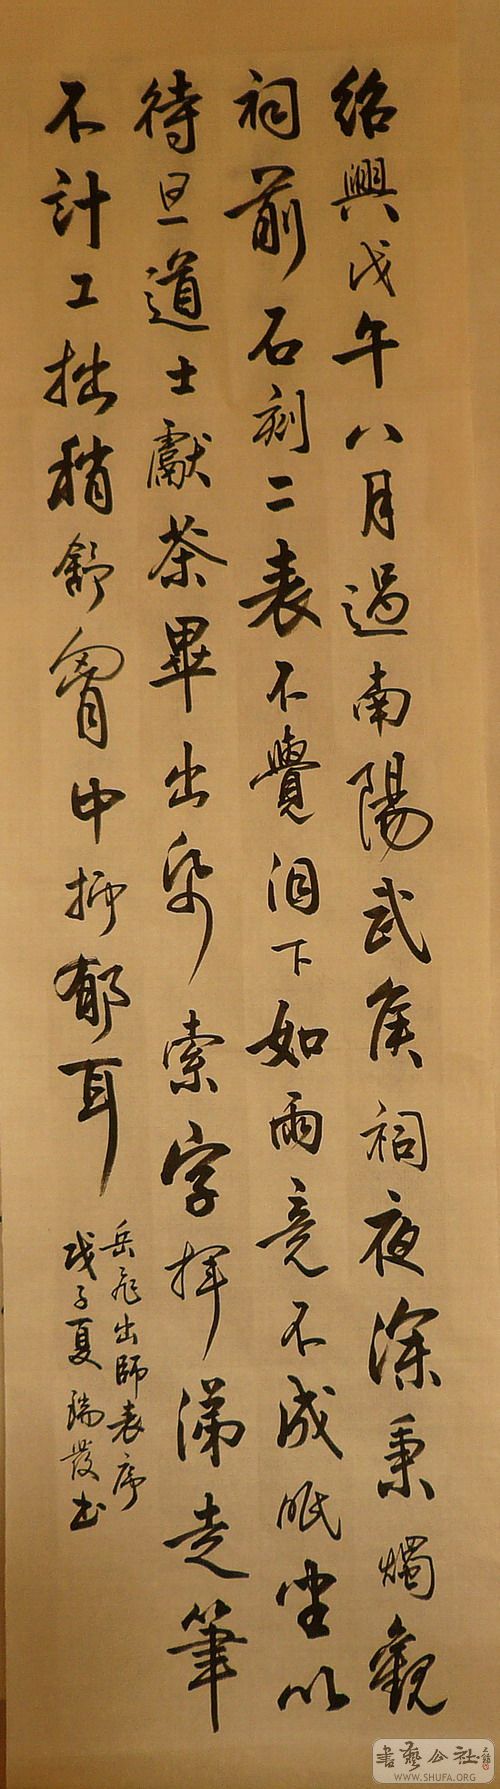 紹興戊午八月過南陽武侯祠夜深秉燭觀
祠前石刻二表不覺泪下如雨竟不成眠坐以
待旦道士獻茶畢出帋索字揮涕走筆
不計工拙稍舒胷中抑郁耳
岳飛出師表序
戊子夏瑞發书
書藝公社
WWW.SHUFA.ORG